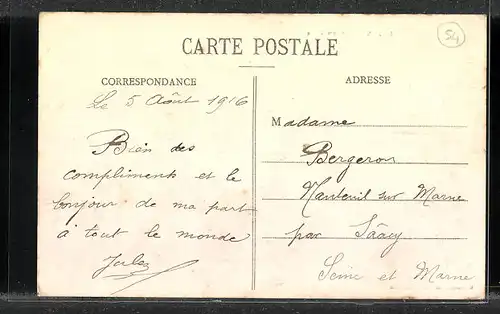 CARTE POSTALE
54
CORRESPONDANCE
ADRESSE
Le 5 Août 1916
Bien des
compliments et le
bonjour de ma part
à tout le monde
Jules
Madame
Bergeron
Nanteuil sur Marne
par Saâcy
Seine et Marne